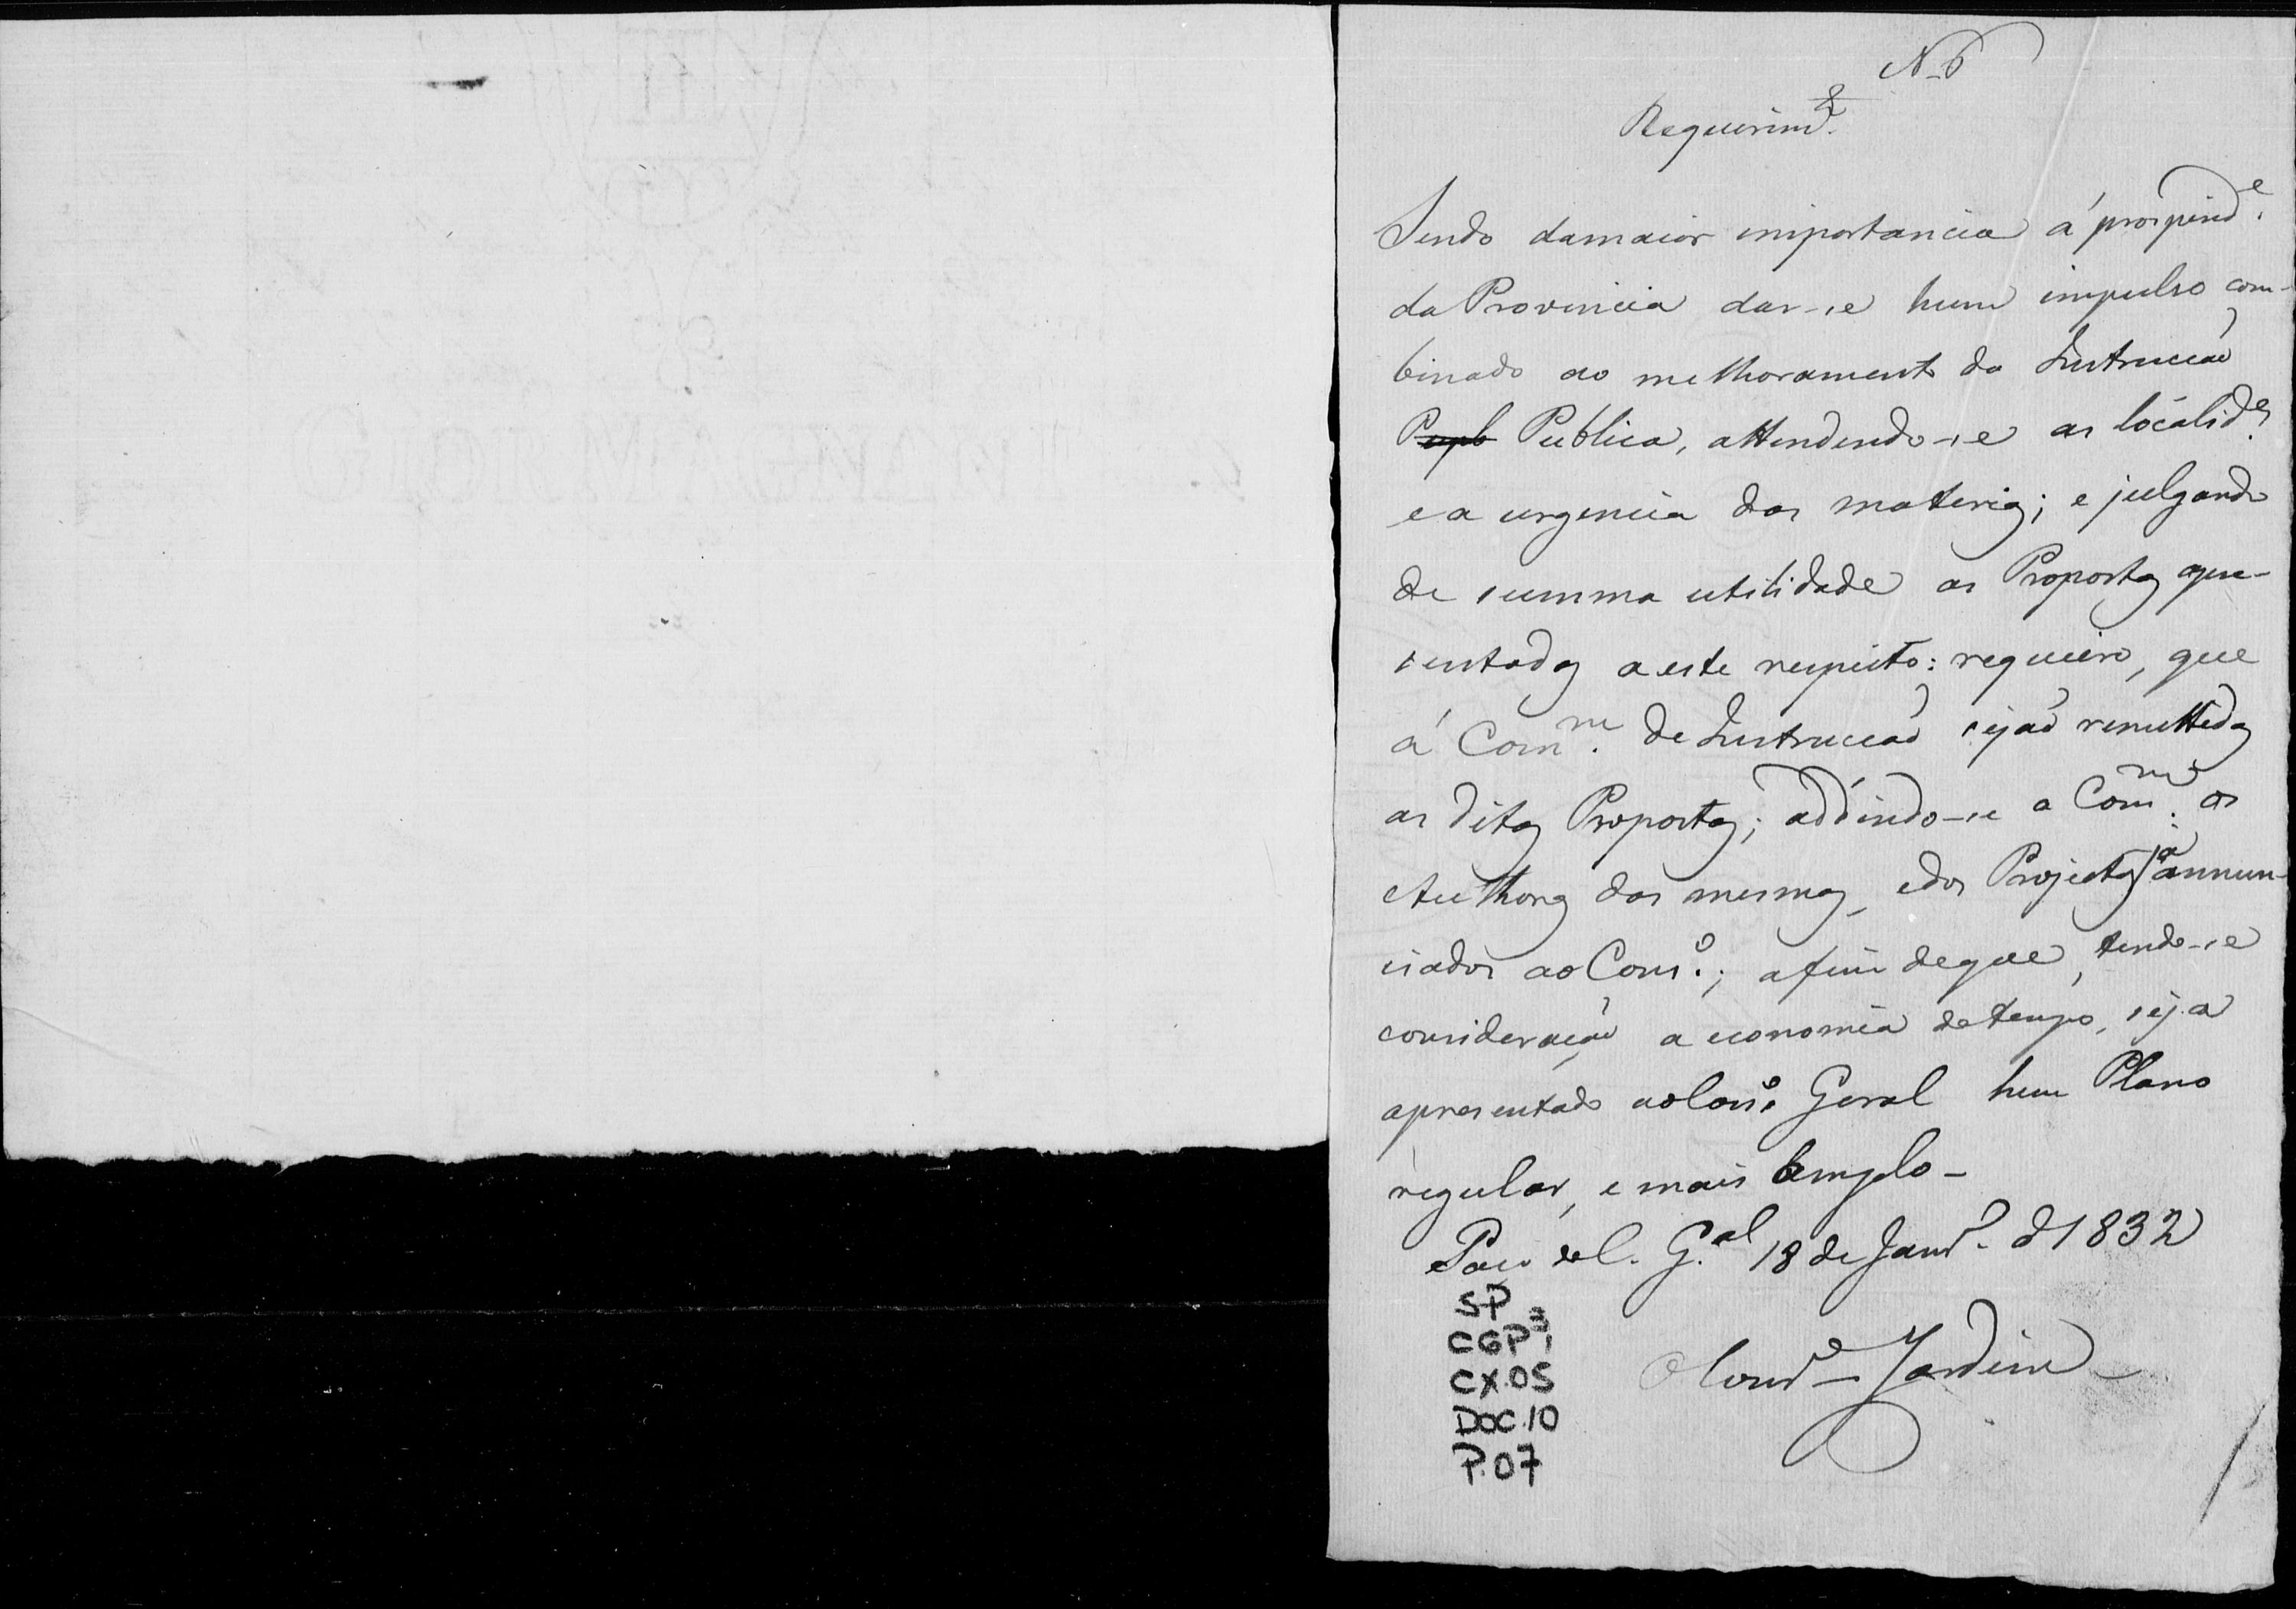 N. 6
Requerim.to
Sendo damaior importancia á prosperid.e
da Provincia dar-se hum impulso com-
binado ao melhoramento da Instrucção
Pupb Publica, attendendo-se as localid.es
e a urgencia das materias; e julgando
de summa utilidade as Propostas apre-
sentadas a este respeito: requeiro, que
á Com.m de Instrucção sejão remettidas
as ditas Propostas; addindo-se a Com.m os
Authores das mesmas, e dos Projectos já annun-
ciados ao Cons.o; afim deque, tendo-se
consideração a economia de tempo, seja
apresentado ao Cons.o Geral hum Plano
regular, e mais amplo-
Paço do C. G.al 18 de Janr.o d 1832
SP
CGP3,1
CX.05
DOC.10
P.07
Jardim